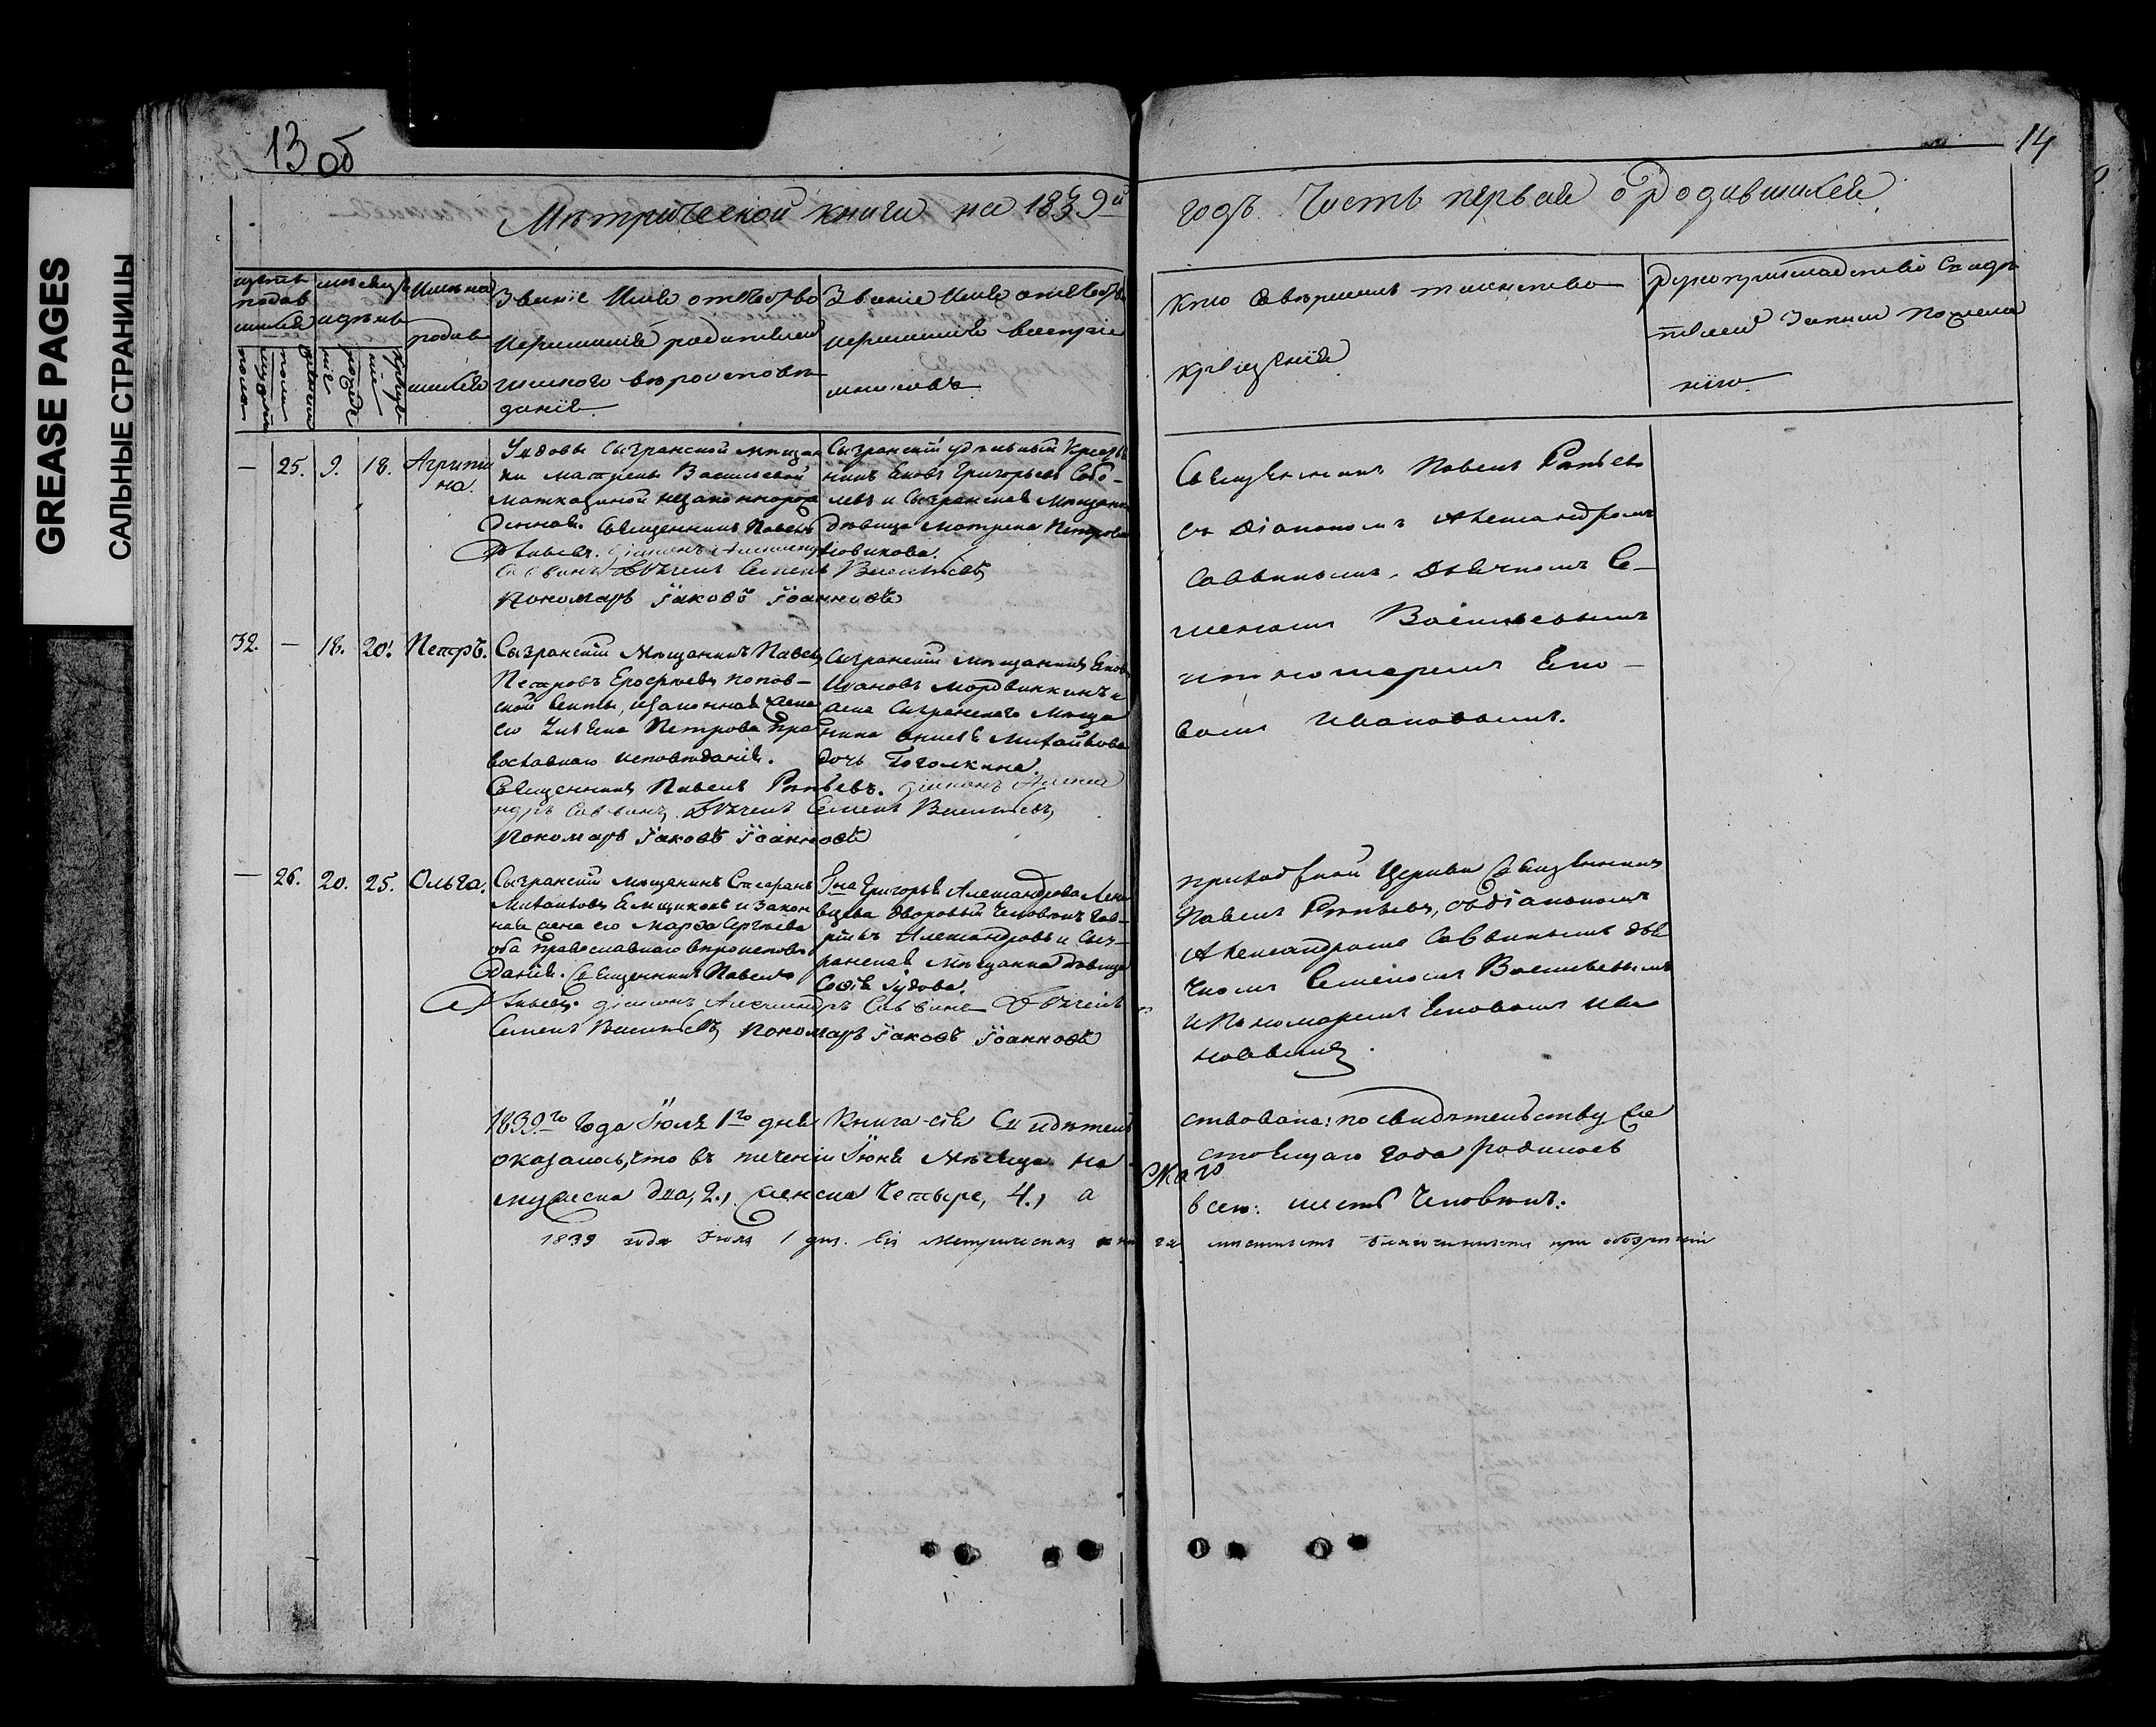 GREASE PAGES
САЛЬНЫЕ СТРАНИЦЫ
13 об
14
Метрической книги на 1839й
годъ Часть первая о родившихся
щетъ родив шихся
мѣсяцъ и день
Имена родив шихся
Званіе Имя отчество и фамилія родителей и какого вѣроисповѣ данія
Званіе Имя отчество и фамилія воспріе мниковъ
Кто совершилъ таинство крещенія
Рукоприкладство Свидѣ телей записи по жела нію
мужеска пола
женска пола
рожде ніе
креще ніе
— 25. 9. 18. Агрипи на.
Удовы Сызранской мѣщан
ки Матрены Васильевой
незаконнорож
денная. Священникъ Павелъ
Діаконъ Александръ
Саввинъ Дьячекъ Семенъ Васильевъ
Пономарь Іаковъ Іоанновъ
Сызранскій удѣльный Кресть
нинъ Яковъ Григорьевъ Собо-
левъ и Сызранская Мѣщанка
дѣвица Матрена Петрова
Новикова.
Священникъ Павелъ
съ Діакономъ Александромъ
Саввинымъ, Дьячкомъ Се-
меномъ Васильевымъ
и пономаремъ Яко-
вомъ Ивановымъ.
32. — 18. 20. Петръ.
Сызранскій Мѣщанинъ Павелъ
Петровъ Ерофѣевъ попов-
ской секты, и законная жена
его Петрова Пра
вославнаго исповѣданія.
Священникъ Павелъ діаконъ Алекса
ндръ Саввинъ Дьячекъ Семенъ Васильевъ
Пономарь Іаковъ Іоанновъ
Сызранскій мѣщанинъ Яковъ
Ивановъ Мордвинкинъ и
жена Сызранскаго Мѣща
нина Михайлова
дочь Гоголкина.
— 26. 20. 25. Ольга.
Сызранскій мѣщанинъ
Михайловъ Ямщиковъ и закон
ная жена его Марфа Сергѣева
оба православнаго вѣроисповѣ
данія. Священникъ Павелъ
діаконъ Александръ Саввинъ Дьячекъ
Семенъ Васильевъ Пономарь Іаковъ Іоанновъ
Гна Григорья Александрова
дворовый Человѣкъ Гав-
рилъ Александровъ и Сыз-
ранская Мѣщанка дѣвица
Софія Гудова.
приходской Церкви Священникъ
Павелъ съ діакономъ
Александромъ Саввинымъ дья
чкомъ Семеномъ Васильевымъ
и Пономаремъ Яковомъ Ива
новымъ.
1839го Года Іюля 1го дня Книга сія Свидѣтель
ствована: по свидѣтельству ея
оказалось, что въ теченіи Іюня Мѣсяца на
стоящаго года родилось
мужеска два, 2., женска четыре, 4., а
всего: шесть Человѣкъ.
1839 года Іюля 1 дня. Сія метрическая кни
га мѣстнымъ благочиннымъ при обозрѣніи